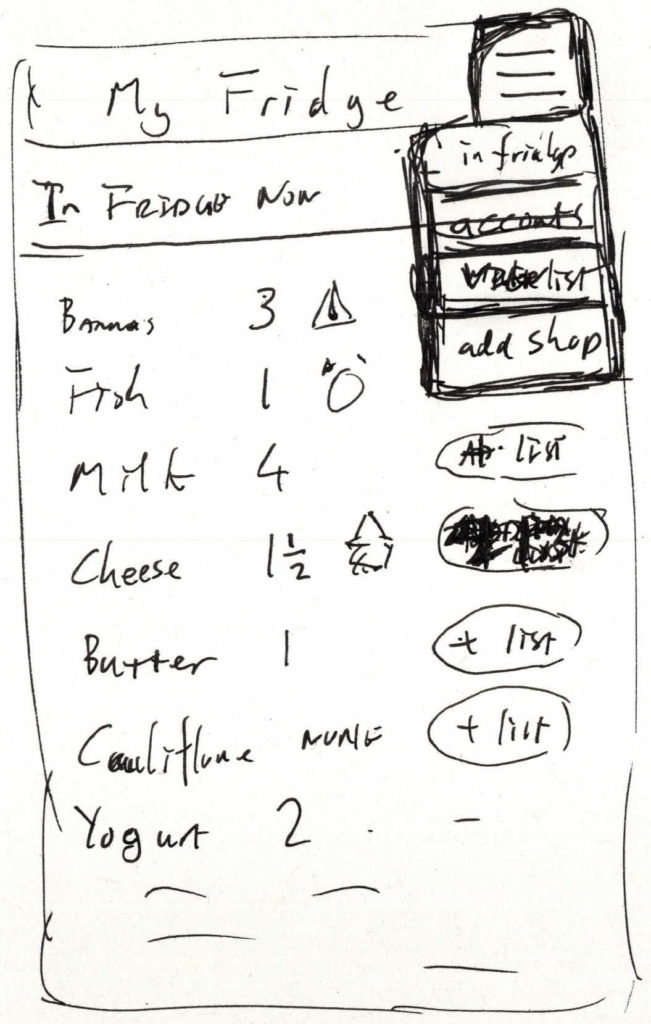 My Fridge
in fridge
In FRIDGE NOW
accounts
list
add shop
Bananas 3
Fish 1
Milk 4
list
Cheese 1 1/2
Butter 1 + list
NONE + list
Yogurt 2 -